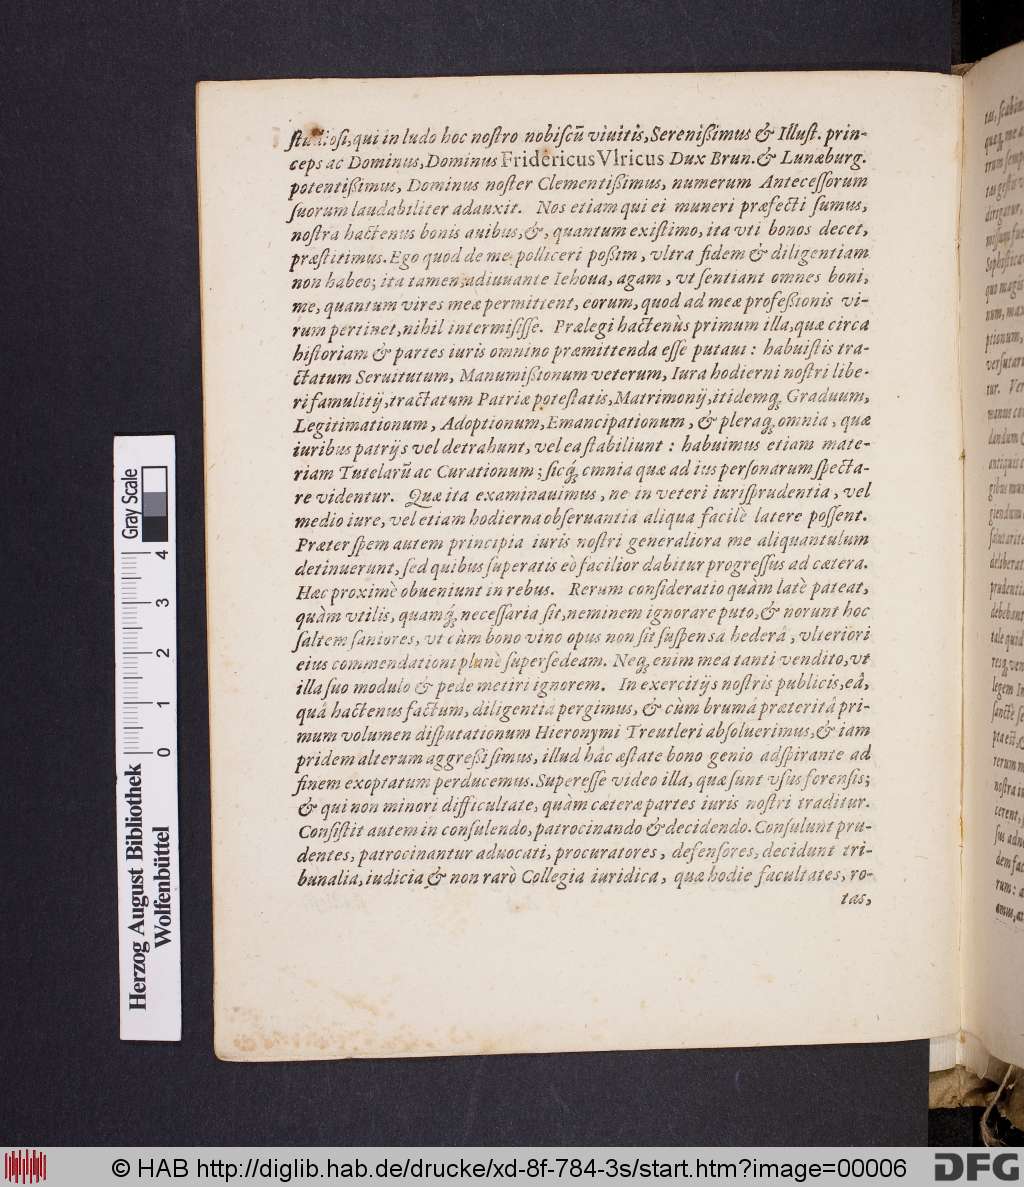 studiosi, qui in ludo hoc nostro nobiscũ viuitis, Serenißimus & Illust. prin-
ceps ac Dominus, Dominus Fridericus Vlricus Dux Brun. & Lunæburg.
potentißimus, Dominus noster Clementißimus, numerum Antecessorum
suorum laudabiliter adauxit. Nos etiam qui ei muneri præfecti sumus,
nostra hactenus bonis auibus, &, quantum existimo, ita vti bonos decet,
præstitimus. Ego quod de me polliceri poßim, vltra fidem & diligentiam
non habeo; ita tamen, adiuuante Iehoua, agam, vt sentiant omnes boni,
me, quantum vires meæ permittent, eorum, quod ad meæ profeßionis vi-
rum pertinet, nihil intermisisse. Prælegi hactenùs primum illa, quæ circa
historiam & partes iuris omnino præmittenda esse putaui: habuistis tra-
ctatum Seruitutum, Manumißionum veterum, Iura hodierni nostri libe-
ri famulitij, tractatum Patriæ potestatis, Matrimonij, itidemq́; Graduum,
Legitimationum, Adoptionum, Emancipationum, & pleraq; omnia, quæ
iuribus patrijs vel detrahunt, vel ea stabiliunt: habuimus etiam mate-
riam Tutelarũ ac Curationum; sicq́; omnia quæ ad ius personarum specta-
re videntur. Quæ ita examinauimus, ne in veteri iurisprudentia, vel
medio iure, vel etiam hodierna obseruantia aliqua facilè latere possent.
Præter spem autem principia iuris nostri generaliora me aliquantulum
detinuerunt, sed quibus superatis eò facilior dabitur progressus ad cætera.
Hæc proximè obueniunt in rebus. Rerum consideratio quàm latè pateat,
quàm vtilis, quamq́; necessaria sit, neminem ignorare puto, & norunt hoc
saltem saniores, vt cùm bono vino opus non sit suspensa hederâ, vlteriori
eius commendationi planè supersedeam. Neq; enim mea tanti vendito, vt
illa suo modulo & pede metiri ignorem. In exercitijs nostris publicis, eâ,
quâ hactenus factum, diligentiâ pergimus, & cùm brumâ præteritâ pri-
mum volumen disputationum Hieronymi Treutleri absoluerimus, & iam
pridem alterum aggreßi simus, illud hâc æstate bono genio adspirante ad
finem exoptatum perducemus. Superesse video illa, quæ sunt vsus forensis;
& qui non minori difficultate, quàm cæteræ partes iuris nostri traditur.
Consistit autem in consulendo, patrocinando & decidendo. Consulunt pru-
dentes, patrocinantur aduocati, procuratores, defensores, decidunt tri-
bunalia, iudicia & non rarò Collegia iuridica, quæ hodie facultates, ro-
tas,
Herzog August Bibliothek
Wolfenbüttel
Gray Scale
0 1 2 3 4
© HAB http://diglib.hab.de/drucke/xd-8f-784-3s/start.htm?image=00006
DFG